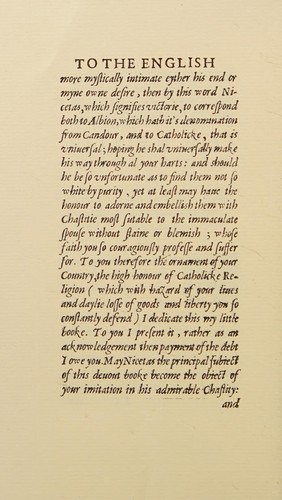 TO THE ENGLISH
more mystically intimate eyther his end or
myne owne desire, then by this word Ni-
cetas, which signifies victorie, to correspond
both to Albion, which hath it's denomination
from Candour, and to Catholicke, that is
vniuersal; hoping he shal vniuersally make
his way through al your harts: and should
he be so vnfortunate as to find them not so
white by purity, yet at least may haue the
honour to adorne and embellish them with
Chastitie most sutable to the immaculate
spouse without staine or blemish; whose
faith you so couragiously professe and suffer
for. To you therefore the ornament of your
Country, the high honour of Catholicke Re-
ligion (which with hazard of your liues
and daylie losse of goods and liberty you so
constantly defend) I dedicate this my little
booke. To you I present it, rather as an
acknowledgement then payment of the debt
I owe you. May Nicetas the principal subiect
of this deuout booke become the obiect of
your imitation in his admirable Chastity:
and